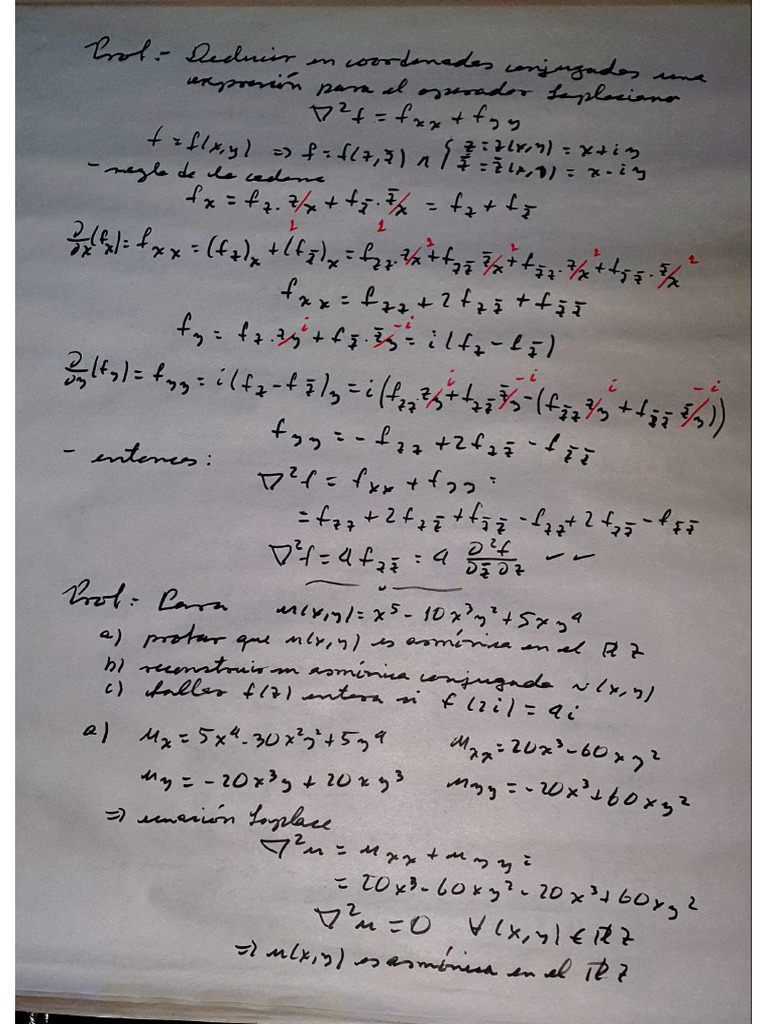 Prob.- Deducir en coordenadas conjugadas una
expresión para el operador Laplaciano
∇²f = f_xx + f_yy
f = f(x,y) ⇒ f = f(z,z̄) ∧ { z = z(x,y) = x+iy
z̄ = z̄(x,y) = x-iy
- regla de la cadena
f_x = f_z · z_x + f_z̄ · z̄_x = f_z + f_z̄
1 1
∂/∂x (f_x) = f_xx = (f_z)_x + (f_z̄)_x = f_zz · z_x¹ + f_zz̄ z̄_x¹ + f_z̄z · z_x¹ + f_z̄z̄ · z̄_x¹
f_xx = f_zz + 2f_zz̄ + f_z̄z̄
f_y = f_z · z_y^i + f_z̄ · z̄_y^-i = i(f_z - f_z̄)
∂/∂y (f_y) = f_yy = i(f_z - f_z̄)_y = i(f_zz z_y^i + f_zz̄ z̄_y^-i - (f_z̄z z_y^i + f_z̄z̄ z̄_y^-i))
f_yy = -f_zz + 2f_zz̄ - f_z̄z̄
- entonces:
∇²f = f_xx + f_yy =
= f_zz + 2f_zz̄ + f_z̄z̄ - f_zz + 2f_zz̄ - f_z̄z̄
∇²f = 4f_zz̄ = 4 ∂²f/∂z̄∂z ✓✓
Prob.- Para u(x,y) = x⁵ - 10x³y² + 5xy⁴
a) probar que u(x,y) es armónica en el PZ
b) reconstruir su armónica conjugada v(x,y)
c) hallar f(z) entera si f(2i) = 4i
a) u_x = 5x⁴ - 30x²y² + 5y⁴ u_xx = 20x³ - 60xy²
u_y = -20x³y + 20xy³ u_yy = -20x³ + 60xy²
⇒ ecuación Laplace
∇²u = u_xx + u_yy =
= 20x³ - 60xy² - 20x³ + 60xy²
∇²u = 0 ∀(x,y) ∈ PZ
⇒ u(x,y) es armónica en el PZ